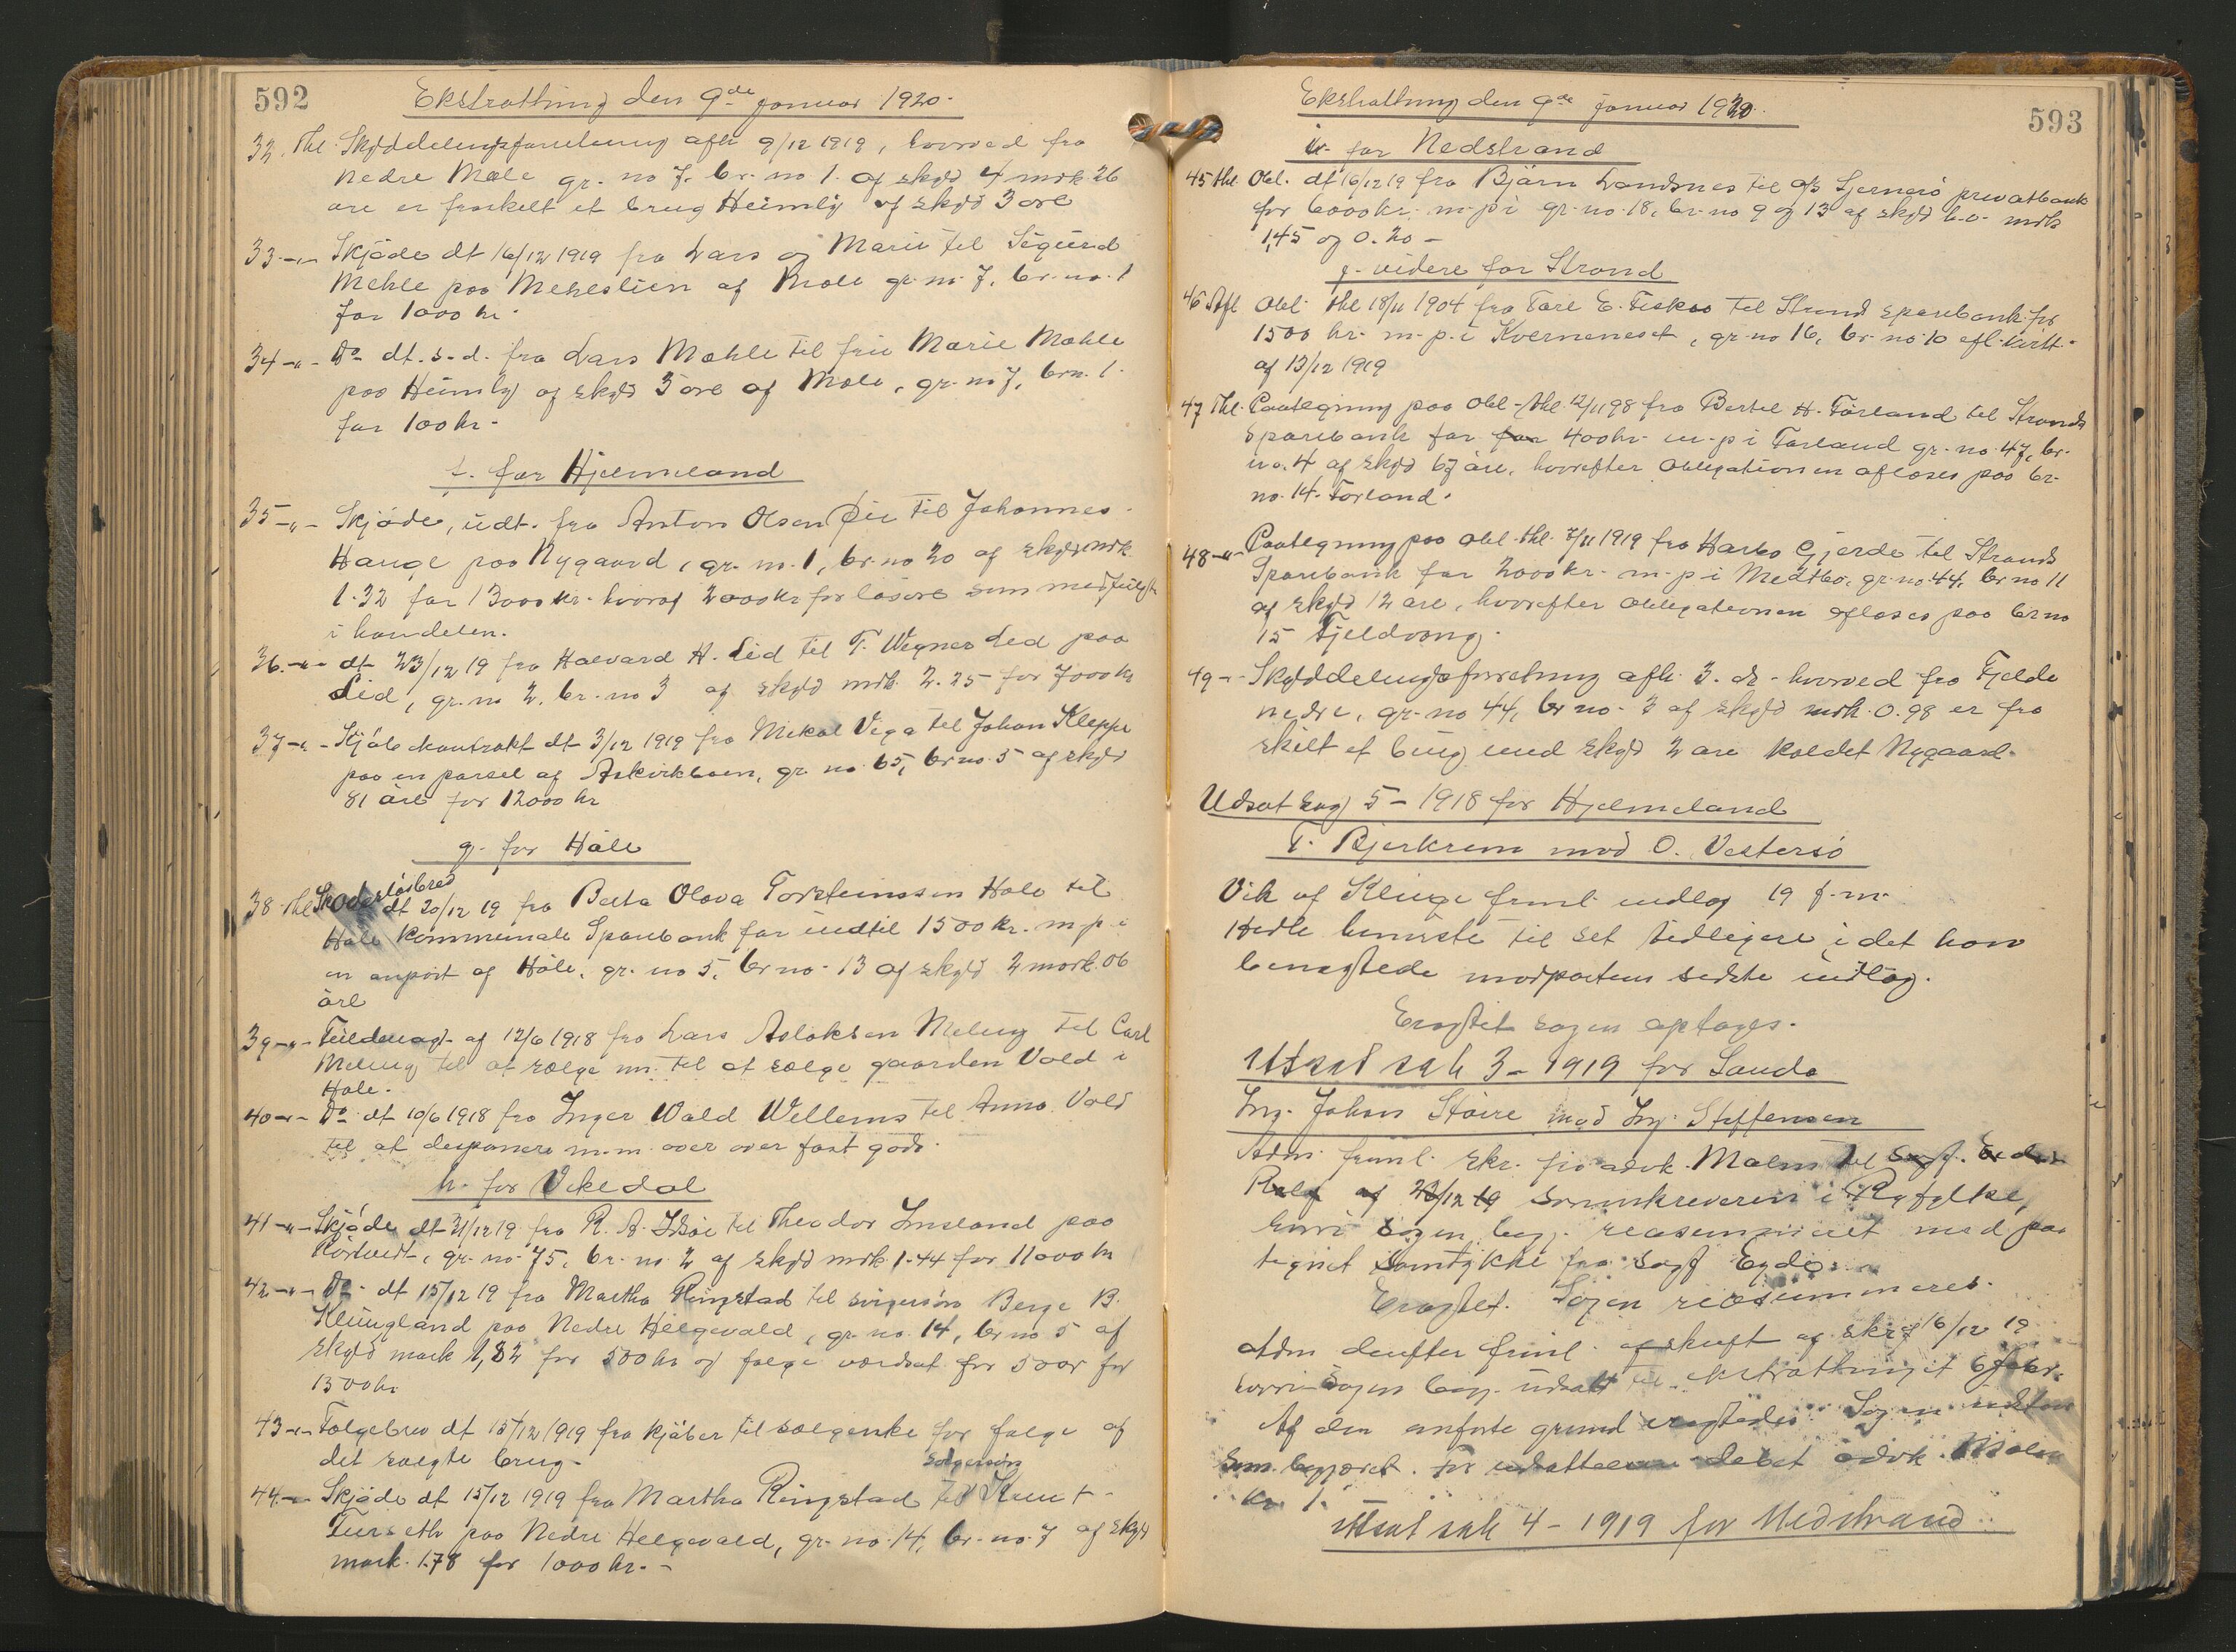 592
Ekstratthing den 9de januar 1920.
32. Thl. Skylddelingsforretning afh 9/12 1919, hvorved fra
Nedre Mæle gr. no 7. br. no 1. af skyld 4 mrk 26
øre er fraskilt et brug Heimly af skyld 3 øre
33 -"- Skjøde dt 16/12 1919 fra Lars og Marie til Sigurd
Mehle paa Mehleslien af Mæle gr. no. 7. br. no. 1
for 1000 kr.
34 -"- Do dt. s. d. fra Lars Mæhle til frü Marie Mæhle
paa Heimly af skyld 3 øre af Mæle, gr. no 7, brn. 1.
for 100 kr.
f. for Hjelmeland
35 -"- Skjøde, üdt. fra Anton Olsen Øie til Johannes
Hauge paa Nygaard, gr. no. 1, br. no 20 af skyld mrk
1.32 for 13000 kr. hvoraf 2000 kr for løsøre som medfulgte
i handelen.
36. -"- dt 23/12 19 fra Halvard H. Lid til T. Wegner Lid paa
Lid, gr. no 2, br. no 3 af skyld mrk. 2.25 for 7000 kr
37 -"- Kjøbekontrakt dt 3/12 1919 fra Mikal Viga til Johan Kleppe
paa en parsel af Askirkhaen, gr. no. 65, br no. 5 af skyld
81 øre for 12000 kr
g. for Høle
38 Thl Skadesløsbrev
dt 20/12 19 fra Berta Olava Torsteinssen Høle til
Høle kommunale Sparebank for indtil 1500 kr. m. p. i
en anpart af Høle, gr. no 5, br no. 13 af skyld 2 mark 06
øre
39 -"- Füldmagt af 12/6 1918 fra Lars Aslaksen Meling til Carl
Meling til at sælge m. til at sælge gaarden Vold i
Høle.
40 -"- Do dt 10/6 1918 fra Inger Wald Wellems til Anna Vold
til at desponere m.m. over over fast gods.
h. for Vikedal
41 -"- Skjøde dt 31/12 19 fra R. A. til Theodor Imsland paa
Körtvedt, gr. no. 75, br. no. 2 af skyld mrk 1.44 for 11000 kr
42 -"- Do dt 15/12 19 fra Martha Ringstad til svigersøn Berge B.
Klüngland paa Nedre Helgevald, gr. no. 14, br no 5 af
skyld mark 1,82 for 500 kr og følge værdsat for 5 aar for
1500 kr
43 -"- Følgebrev dt 15/12 1919 fra kjøber til sælgerske for følge af
det solgte brug.
svigersøn
44 -"- Skjøde dt 15/12 1919 fra Martha Ringstad til Knut
Turseth paa Nedre Helgevald, gr. no. 14, br. no. 7 af skyld
mark. 1.78 for 1000 kr.
593
Ekstratthing den 9de januar 1920.
i. for Nedstrand
45 thl. Obl. dt 16/12 19 fra Bjarn Landsnes til A/S Sjernerø privatbank
for 6000 kr. m. p. i gr. no. 18, br. no 9 og 13 af skyld h.v. mrk
1,45 og 0.20 -
j. videre for Strand
46 Afl Obl. thl 18/11 1904 fra Tore E. Fiskaa til Strand sparebank for
1500 kr. m. p. i Kverneneset, gr. no 16, br. no 10 efl. kvitt.
af 13/12 1919
47 Thl. Paategning paa obl. thl. 12/11 98 fra Bertel H. Førland til Strands
Sparebank for for 400 kr. m. p i Førland gr. no. 47, br.
no. 4 af skyld 67 øre, hvorefter obligationen afløses paa br.
no. 14. Førland.
48 -"- Paategning paa obl. thl. 7/11 1919 fra Gjerde til Strands
Sparebank for 2000 kr. m. p. i Medtbø, gr. no. 44, br no 11
af skyld 12 øre, hvorefter obligationen afløses paa br no
15 Fjeldvang.
49 -"- Skylddelingsforretning afh. 3. ds. hvorved fra Fjelde
nedre, gr. no 44, br no. 3 af skyld mrk. 0.98 er fra
skilt et brüg med skyld 2 øre kaldet Nygaard.
Udsat sag 5 - 1918 for Hjelmeland
T. Bjerkrem mod O. Vestersø
Vik af Kluge freml. indlæg 19 f. m.
Hedle henviste til set tidligere i det han
benegtede modpartens sidste indlæg.
Eragtet sagen optages.
Utsat sak 3 - 1919 for Sauda
Ing. Johan Støre mod Ing. Steffensen
Adm. freml. skr. fra advk. Malm til
23/12 19 sorenskriveren i Ryfylke,
hvori sagen beg. reasummeret med paa
tegnet samtykke fra sagf Egdø
Eragtet. Sagen reasummeres.
Adm derefter freml. afskrift af skr af 16/12 19
hvori sagen beg. udsatt til ekstratthinget 6 febr.
Af den anførte grund eragtedes: Sagen udsættes
som begjæret. For udsættelsen debet advk. Malm
kr 1.
Utsat sak 4 - 1919 for Nedstrand